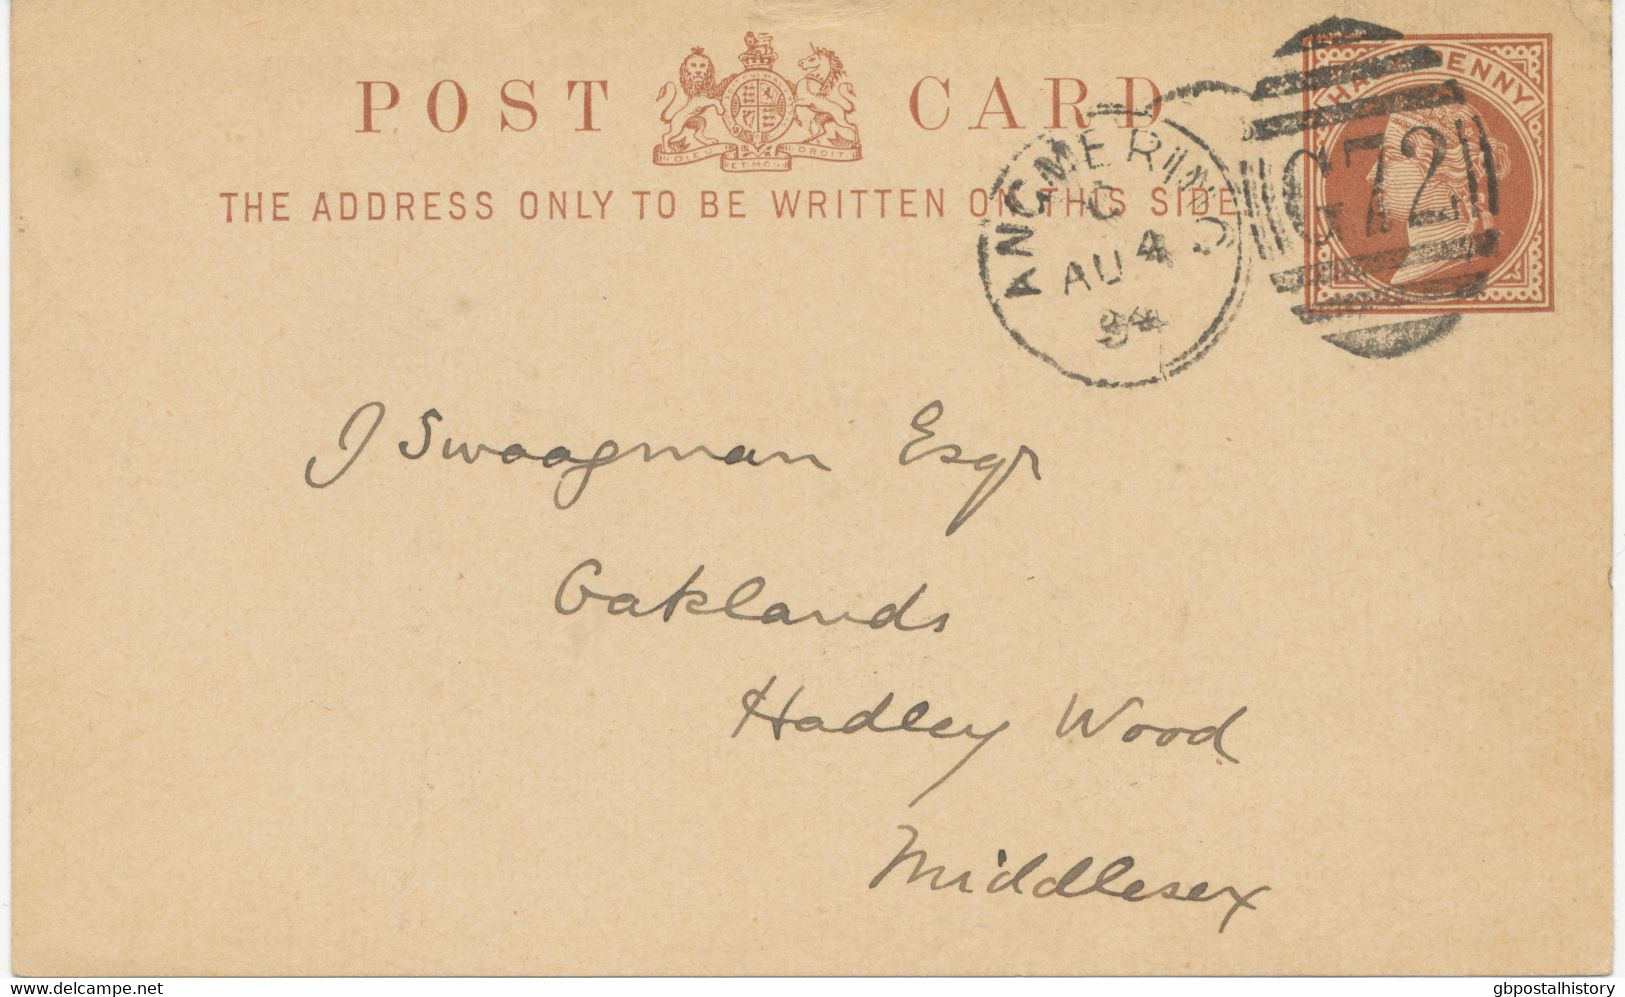 POST CARD
DIEU ET MON DROIT
THE ADDRESS ONLY TO BE WRITTEN ON THIS SIDE
HALFPENNY
ANGMERING
C
AU 4
94
G72
J Swaagman Esqr
Oaklands
Hadley Wood
Middlesex
www.delcampe.net
gbpostalhistory